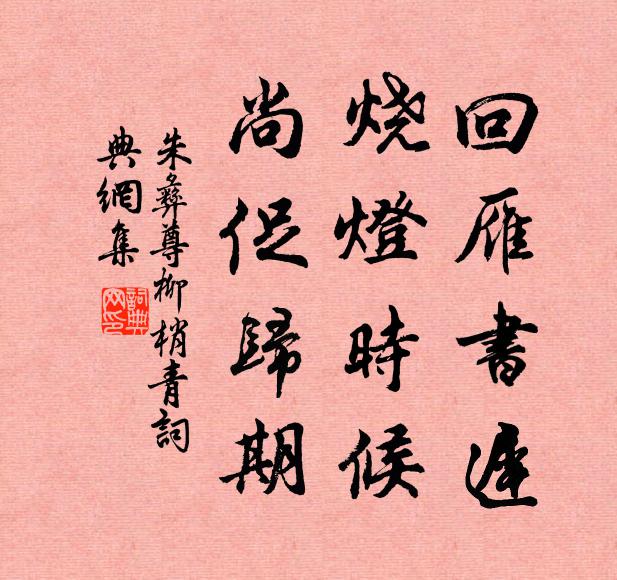 回雁書遲
烧燈時候
尚促歸期
朱彝尊柳梢青詞
典網集
詞典网印